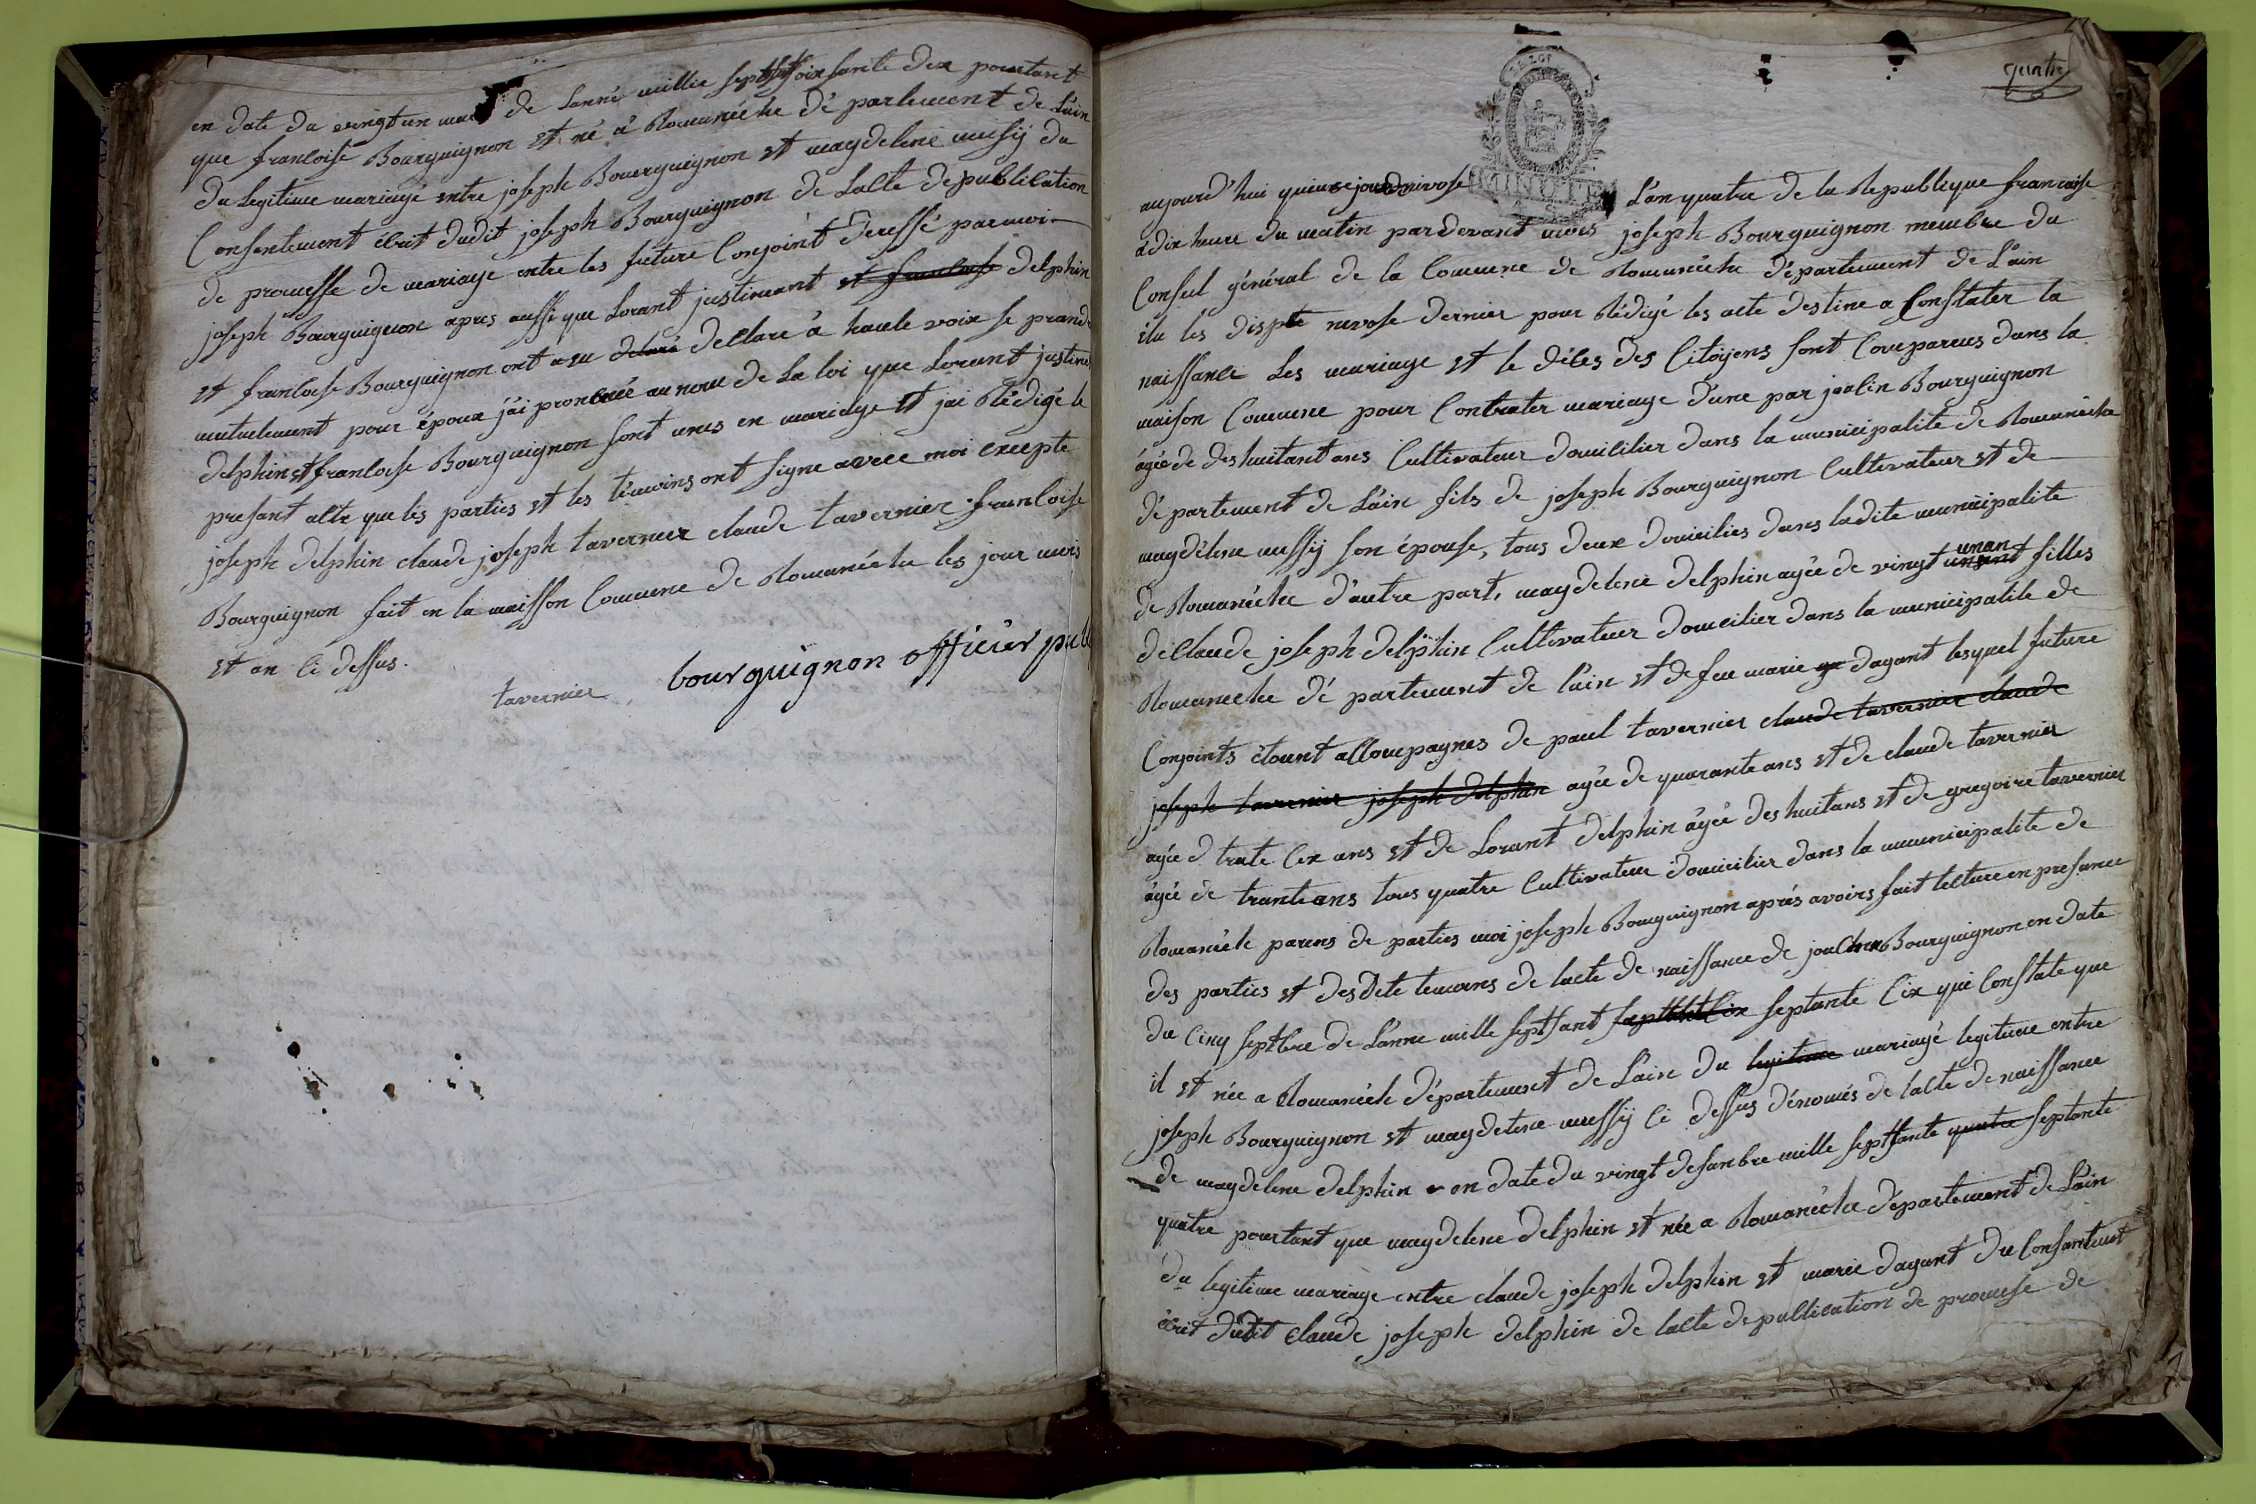 en date du vingt un mars de lanné millie sept soixsante dix pourtant
que francoise Bourguignon et né a Romanéche dé partement de Lain
du legitime mariage entre joseph Bourguignon et magdelene missij du
Consentement écrit dudit joseph Bourguignon de Lacte de publication
de promesse de mariage entre les future Conjoint dressé par moi
joseph Bourguignon apres aussi que Lorant justinant et francoise delphin
et francoise Bourguignon ont a eu declaré declare a haute voix se prandre
mutuelement pour époux j'ai prononcé au nom de La loi que Lorant justinant
delphin et francoise Bourguignon sont unis en mariage et jai Rédigé le
presant acte que les parties et les témoins ont signe avec moi excepte
joseph delphin claude joseph tavernier claude tavernier francoise
Bourguignon fait en la maisson Commune de Romanéche les jour mois
et an Ci dessus.
tavernier bourguignon officier publ
quatre
aujourd'hui quinze jour nivose L'an quatre de la Republique francaise
a dix heure du matin par devant mois joseph Bourguignon membre du
Conseil général de la Commune de Romanéche département de L'ain
élu les dispte nevose dernier pour Rédigé les acte destine a Constater la
naissance Les mariage et le déces des Citoyens sont Comparus dans la
maison Commune pour Contrater mariage d'une par joalin Bourguignon
agée de deshuitant ans Cultivateur domicilier dans la municipalite de Romanéche
département de L'ain fils de joseph Bourguignon Cultivateur et de
magdelene missij son épouse, tous deux domicilies dans ladite municipalite
de Romanéche d'autre part, magdelene delphin agée de vingt unan filles
de Claude joseph delphin Cultivateur domicilier dans la municipalite de
Romaneche dé partement de l'ain et de feu marie ga dagant lesquel future
Conjoints étant allompagnes de paul tavernier claude tavernier claude
joseph tavernier joseph delphin agée de quarante ans et de claude tavernier
agée d trate six ans et de Lorant delphin agée deshuitans et de gregoire tavernier
agée de trante ans tous quatre Cultivateur domicilier dans la municipalite de
Romanéche parens de parties moi joseph Bouguignon aprés avoirs fait lecture en presance
des parties et des dite temoins de lacte de naissance de joachin Bourguignon en date
du Cinq septbre de L'anne mille septsant septante Cix qui Constate que
il et née a Romanéche département de L'ain du legitime mariagé legitime entre
joseph Bourguignon et magdelene missij Ci dessus dénomés de lacte de naissance
de magdelene delphin en date du vingt desanbre mille septsante quatre septante
quatre pourtant que magdelene delphin et née a Romanéche département de L'ain
du legitime mariage entre claude joseph delphin et marie dagant du Consantemt
écrit dudit Claude joseph delphin de lacte de publication de promese de